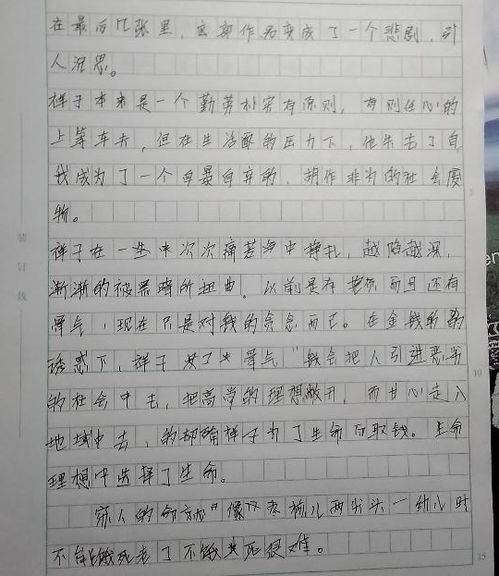 在最后几张里，这部作品变成了一个悲剧，引
人沉思。
祥子本来是一个勤劳朴实有原则，有责任心的
上等车夫，但在生活的压力下，他失去了自
我成为了一个自暴自弃的，胡作非为的社会废
物。
祥子在一生中次次痛苦中挣扎，越陷越深，
渐渐的被黑暗所扭曲。以前是有 而且还有
骨气，现在只是对钱的贪念而已。在金钱的
诱惑下，祥子 了 骨气"钱会把人引进恶劣
的社会中去，把高尚的理想 开，而甘心走入
地域中去，的确祥子为了生命 取钱。生命
理想中选择了生命。
穷人的命 "像 枣核儿两头尖一幼儿时
不能饿死老了不饿死很难。
装订线
5
10
15